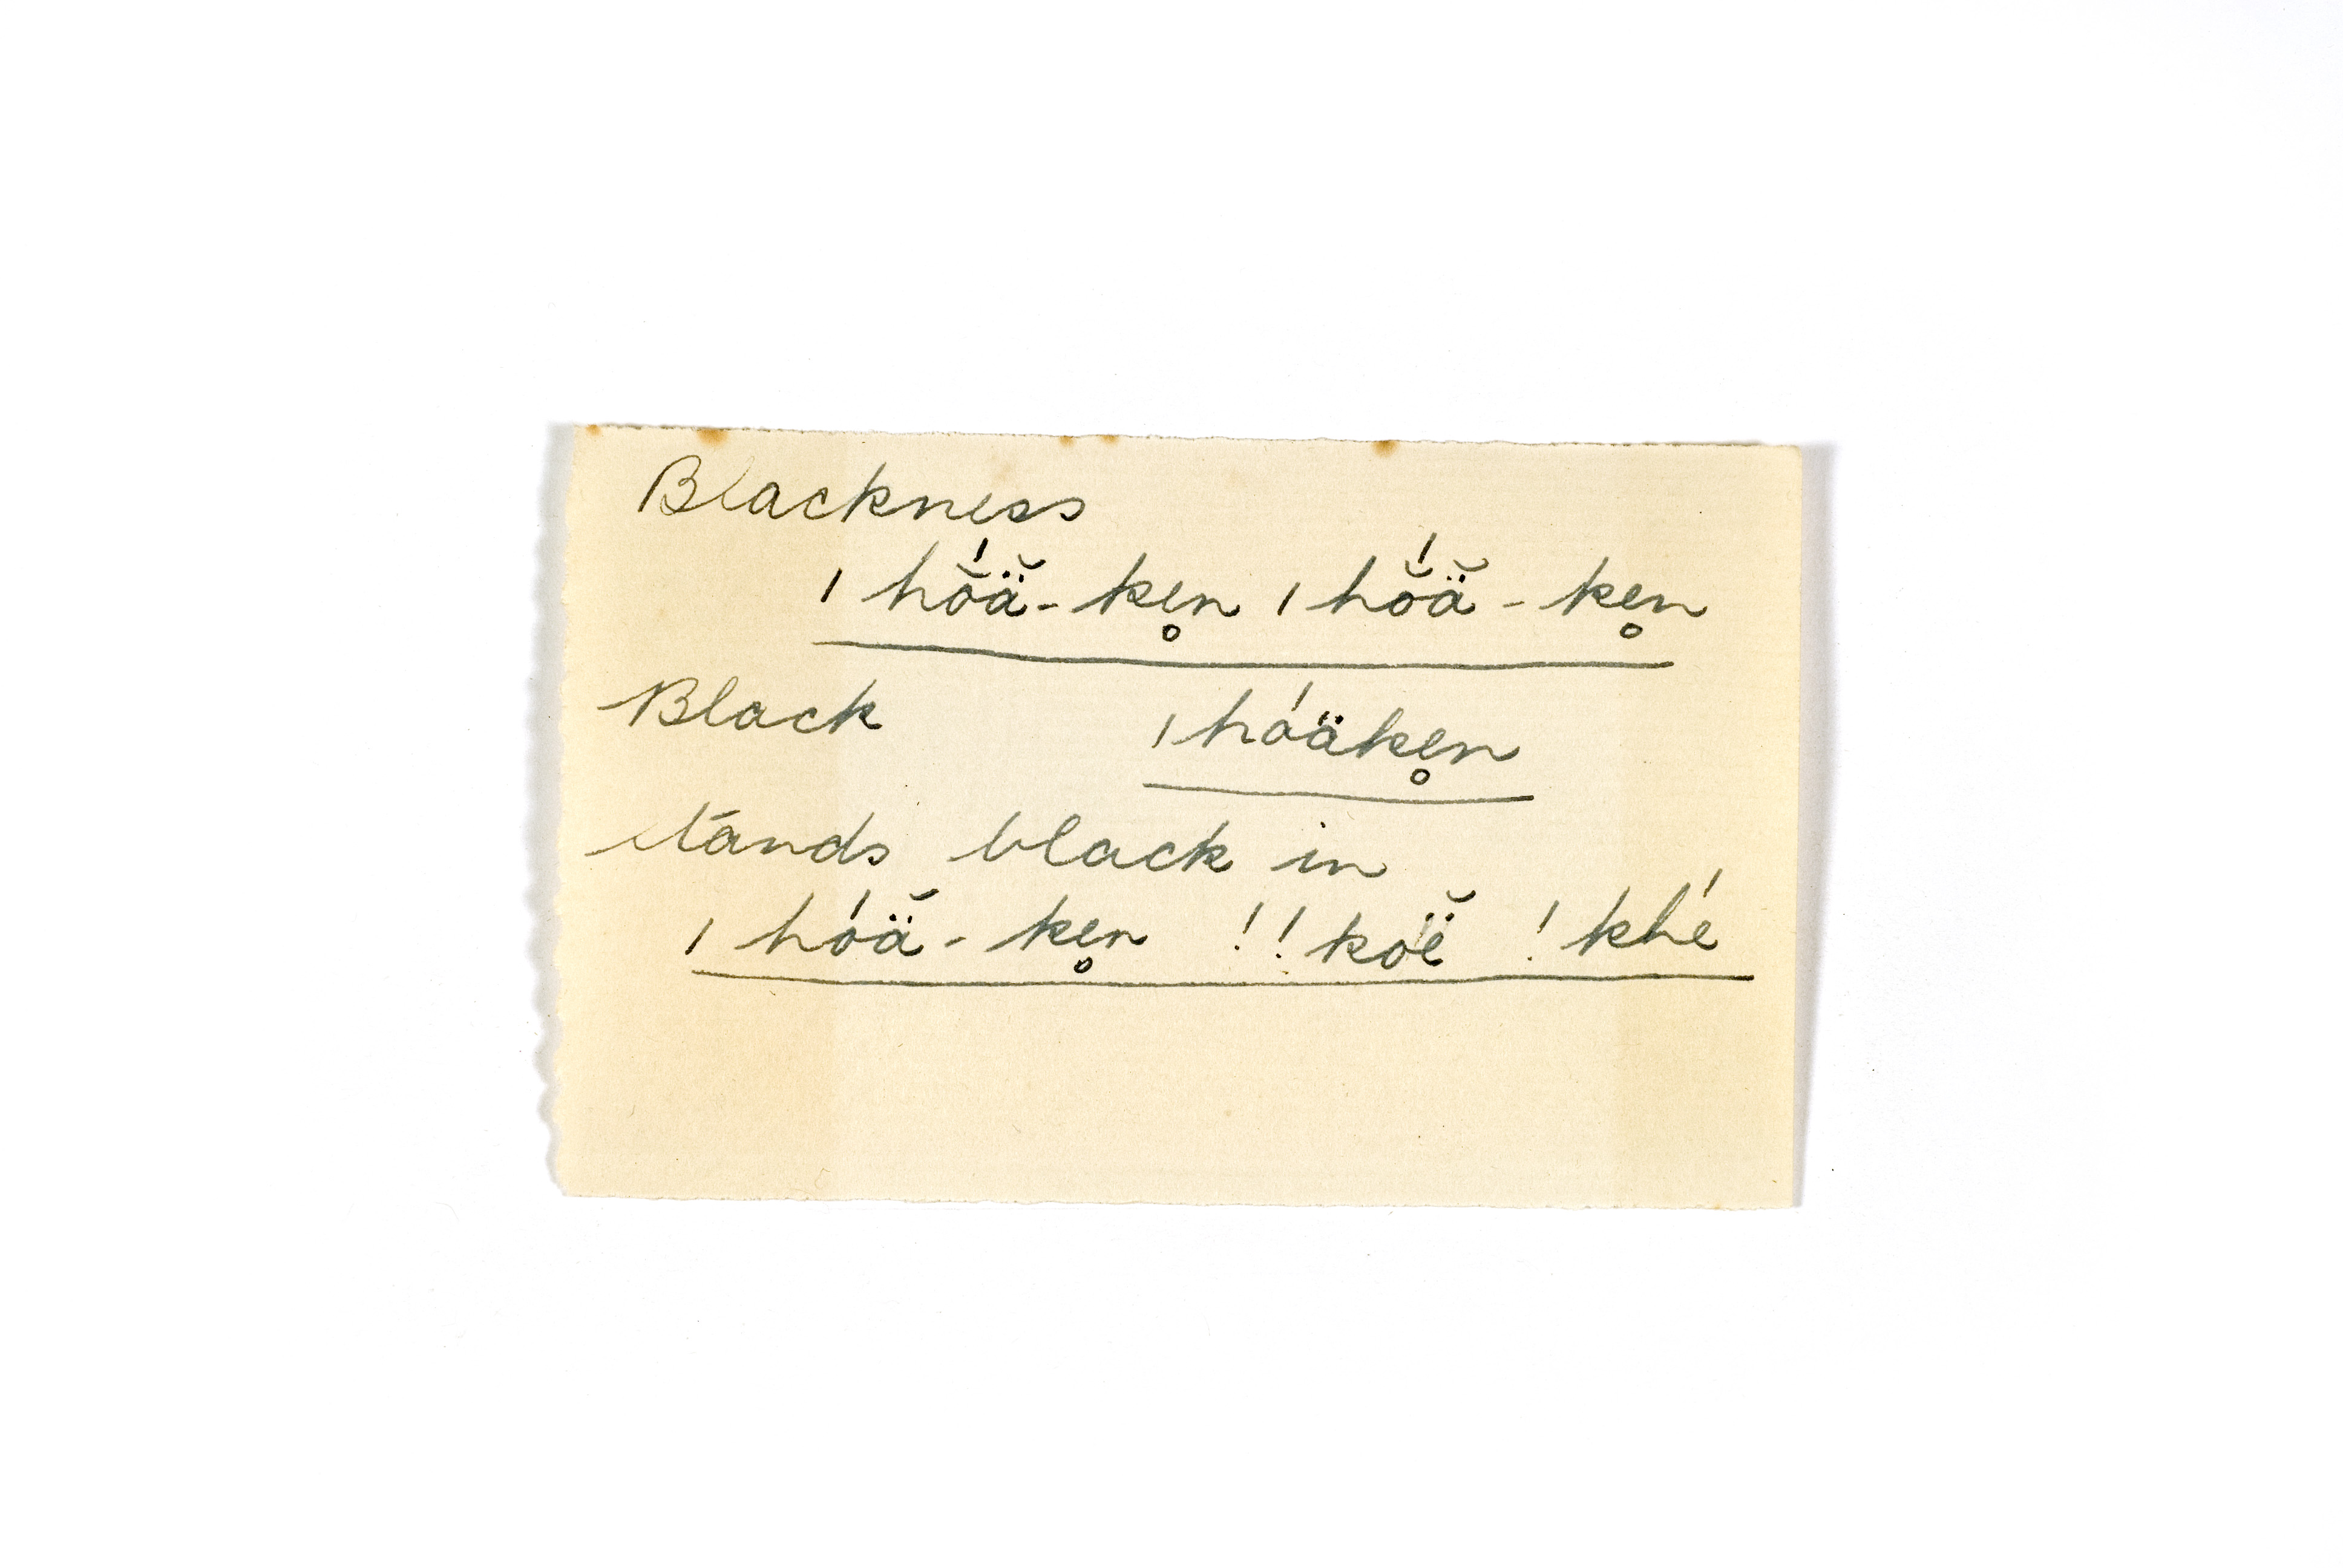 Blackness
ǀhŏ́ä̆-ken̥ ǀhŏ́ä̆-ken̥
Black ǀhóäken̥
stands black in
ǀhóä̆-ken̥ !!kóë̆ !khé